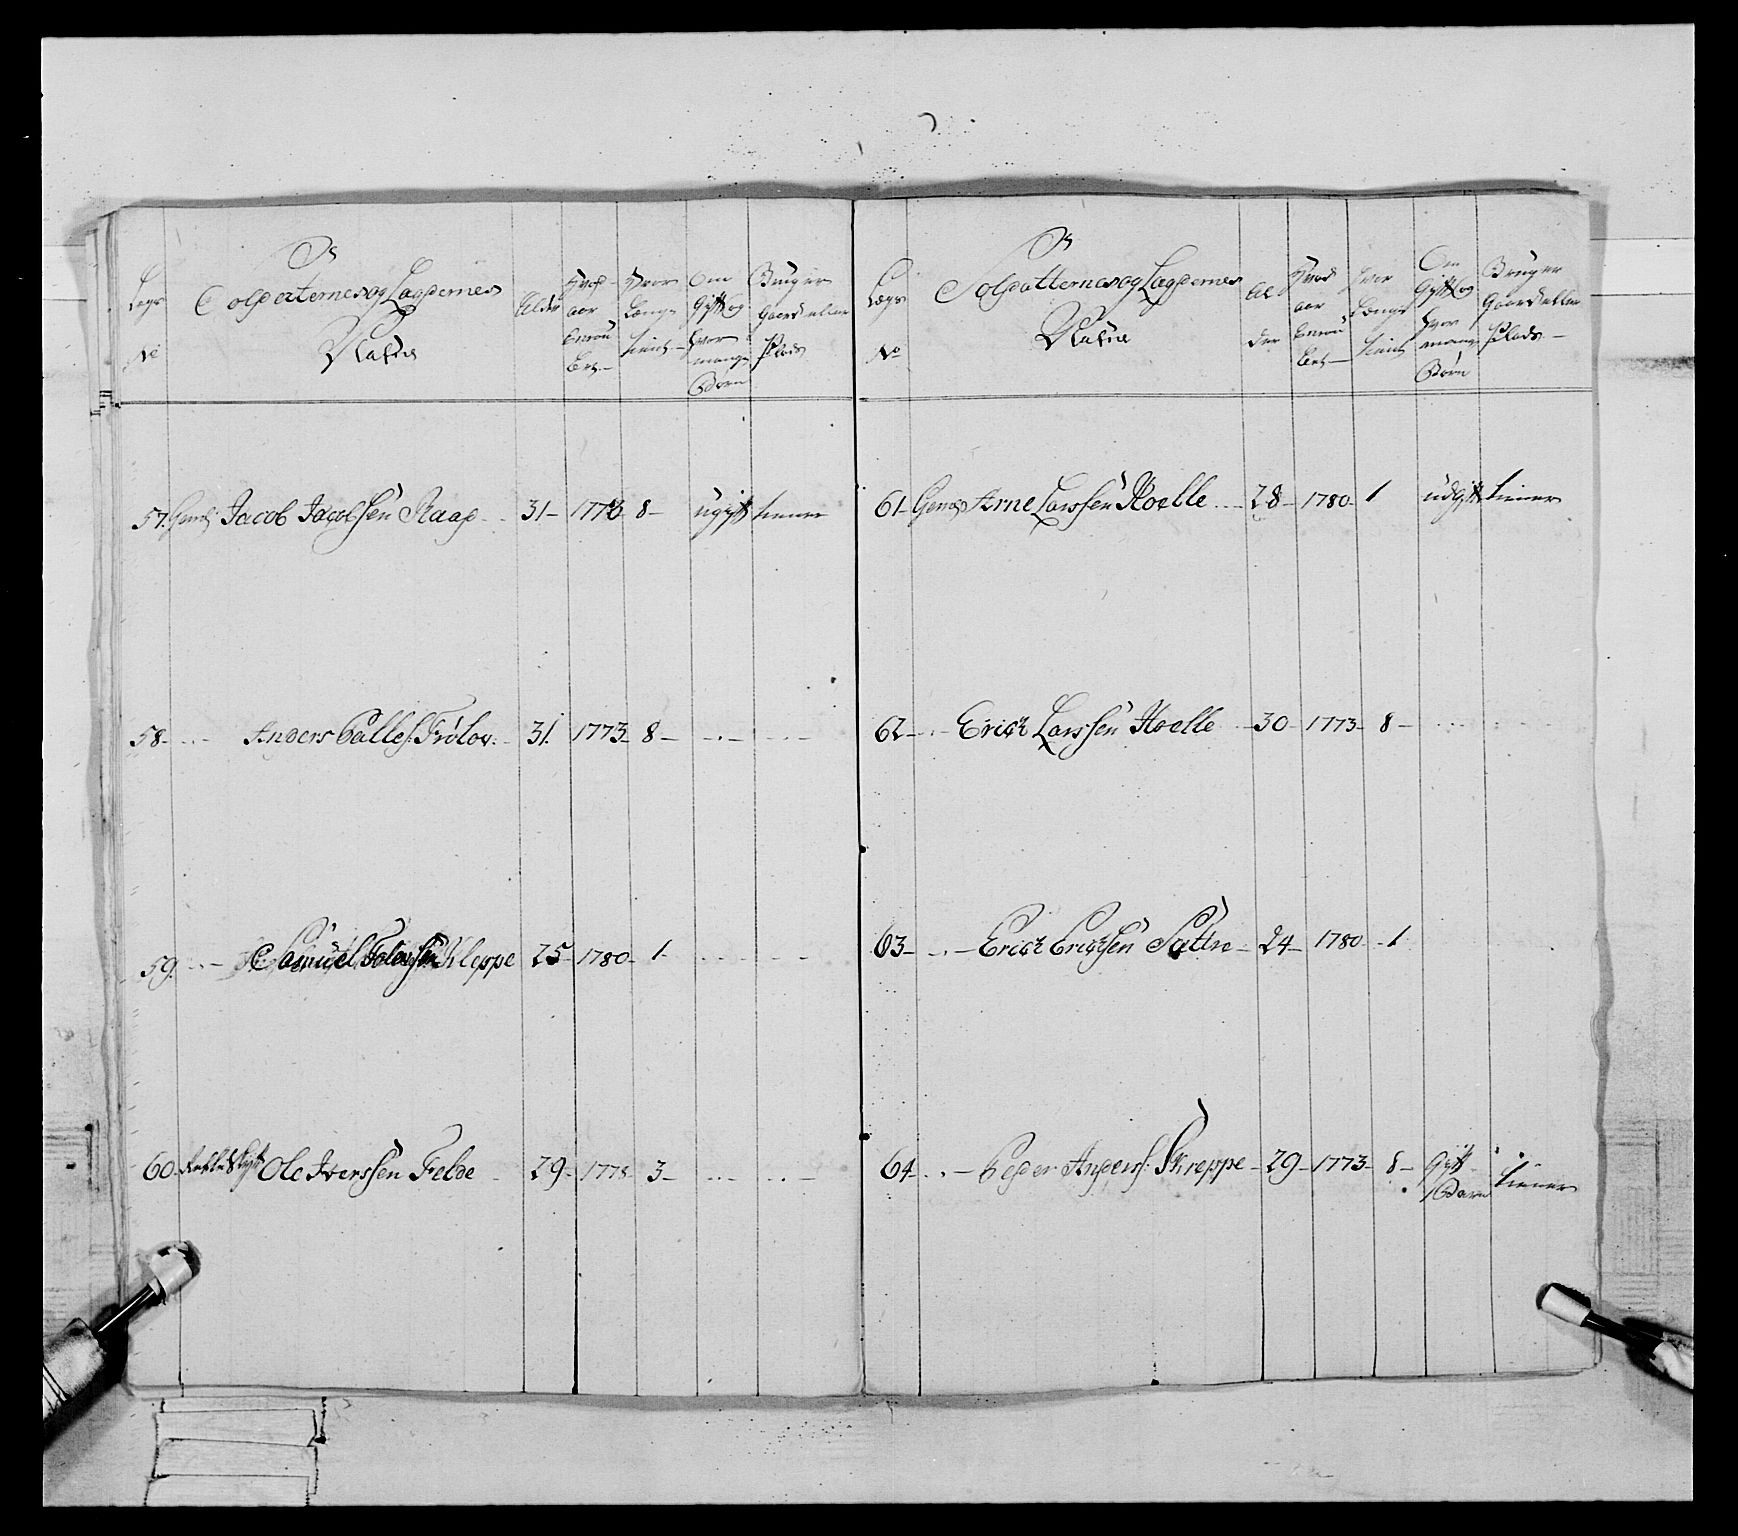 Legs No
Soldaternes og Lægdernes Nafne
Alder
Hvad aar Enrou leret
Hvor Længe tient
Om Gift og hvor mange Børn
Bruger Gaard eller Plads
57. Gemd: Jacob Jacobsen Raag 31 1773 8 ugift tiener
58 Anders Palles: Frølov 31 1773 8
59. Samuel Kleppe 25 1780 1
60 Ole Iverssen Felde 29 1778 3
Lægs No
Soldatternes og Lægdernes Nafne
Alder
Hvad aar Enrou leret
Hvor Længe tient
Om Gift og hvor mange Børn
Bruger Gaard eller Plads
61 Gemd Arne Larssen Hoelle 28 1780 1 udgift tiener
62 Erich Larssen Hoelle 30 1773 8
63 Erich Erichsen Sattre 24 1780 1
64 Peder Anders: Skreppe 29 1773 8 Gift 1 Barn tiener